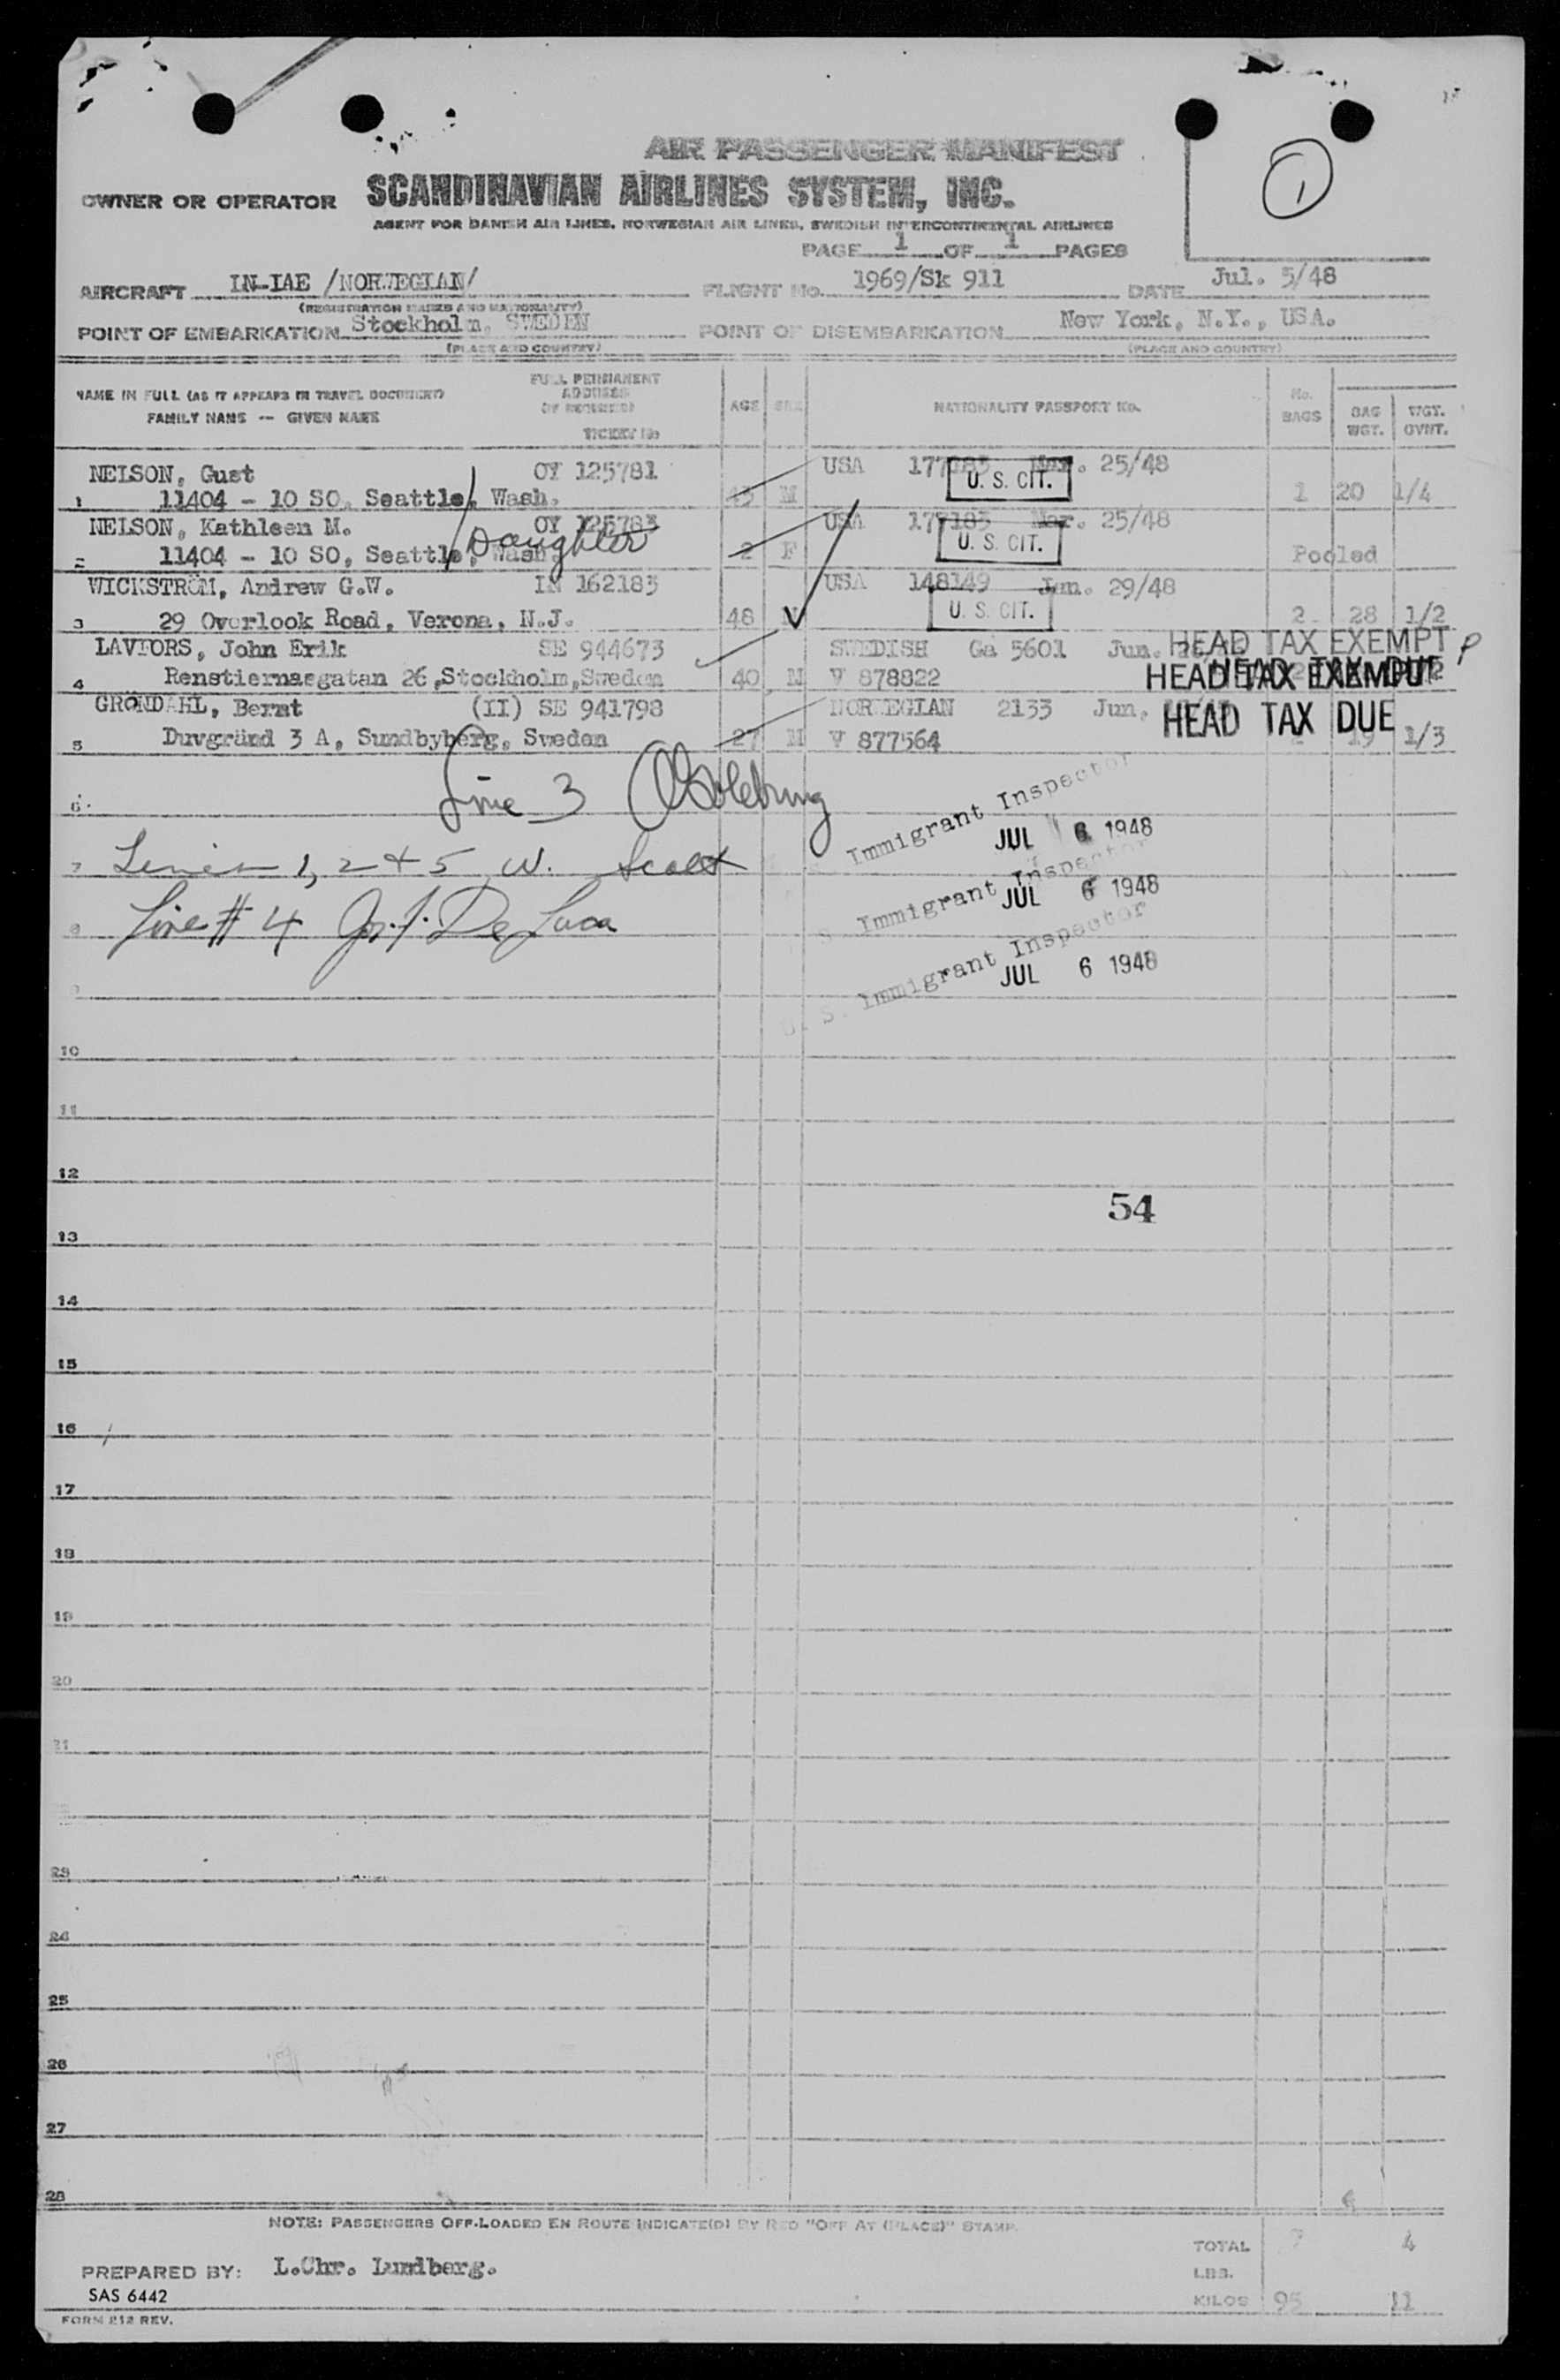 1
AIR PASSENGER MANIFEST
OWNER OR OPERATOR SCANDINAVIAN AIRLINES SYSTEM, INC.
AGENT FOR DANISH AIR LINES, NORWEGIAN AIR LINES, SWEDISH INTERCONTINENTAL AIRLINES
PAGE 1 OF 1 PAGES
AIRCRAFT LN-IAE /NORWEGIAN/ FLIGHT No. 1969/Sk 911 DATE Jul. 5/48
(REGISTRATION MARKS AND NATIONALITY)
POINT OF EMBARKATION Stockholm, SWEDEN POINT OF DISEMBARKATION New York, N.Y., USA.
(PLACE AND COUNTRY) (PLACE AND COUNTRY)
NAME IN FULL (AS IT APPEARS IN TRAVEL DOCUMENT) FULL PERMANENT ADDRESS (IF REQUIRED) AGE SEX NATIONALITY PASSPORT No. No. BAGS BAG WGT. WGT. OVNT.
FAMILY NAME -- GIVEN NAME TICKET No
NELSON, Gust OY 125781 USA Mar. 25/48
U. S. CIT.
1 11404 - 10 SO, Seattle, Wash. M 1 20 1/4
NELSON, Kathleen M. OY 125783 USA Mar. 25/48
Daughter U. S. CIT.
2 11404 - 10 SO, Seattle, Wash. 2 F Pooled
WICKSTRÖM, Andrew G.W. IN 162183 USA 148149 Jan. 29/48
U. S. CIT.
3 29 Overlook Road, Verona, N.J. 48 2 28 1/2
LAVFORS, John Erik SE 944673 SWEDISH Ga 5601 Jun. HEAD TAX EXEMPT P
4 Renstiernasgatan 26, Stockholm, Sweden 40 M V 878822 HEAD TAX EXEMPT
HEAD TAX DUE
GRÖNDAHL, Bernt (II) SE 941798 NORWEGIAN 2133 Jun. HEAD TAX DUE
5 Duvgränd 3 A, Sundbyberg, Sweden 27 M V 877564 19 1/3
6 Line 3
Immigrant Inspector
JUL 6 1948
7 Lines 1, 2 + 5 W. Scott
Immigrant Inspector
JUL 6 1948
8 Line # 4 De Luca
U. S. Immigrant Inspector
JUL 6 1948
9
10
11
12
54
13
14
15
16
17
18
19
20
21
23
24
25
26
27
28
NOTE: PASSENGERS OFF-LOADED EN ROUTE INDICATE(D) BY RED "OFF AT (PLACE)" STAMP.
TOTAL 7 4
PREPARED BY: L.Chr. Lundberg. LBS.
SAS 6442
KILOS 95 11
FORM 212 REV.